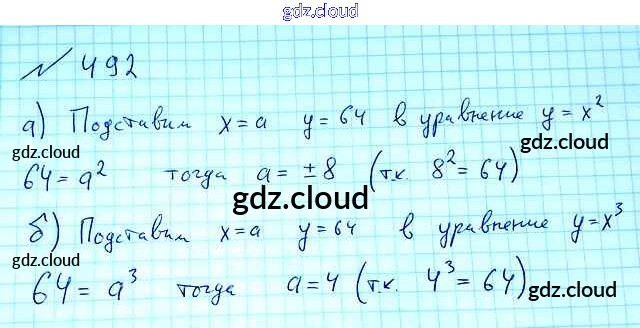 gdz.cloud
N 492
а) Подставим x=a y=64 в уравнение y=x²
gdz.cloud gdz.cloud
64=a² тогда a=±8 (т.к. 8²=64)
gdz.cloud
б) Подставим x=a y=64 в уравнение y=x³
gdz.cloud
64=a³ тогда a=4 (т.к. 4³=64)
gdz.cloud